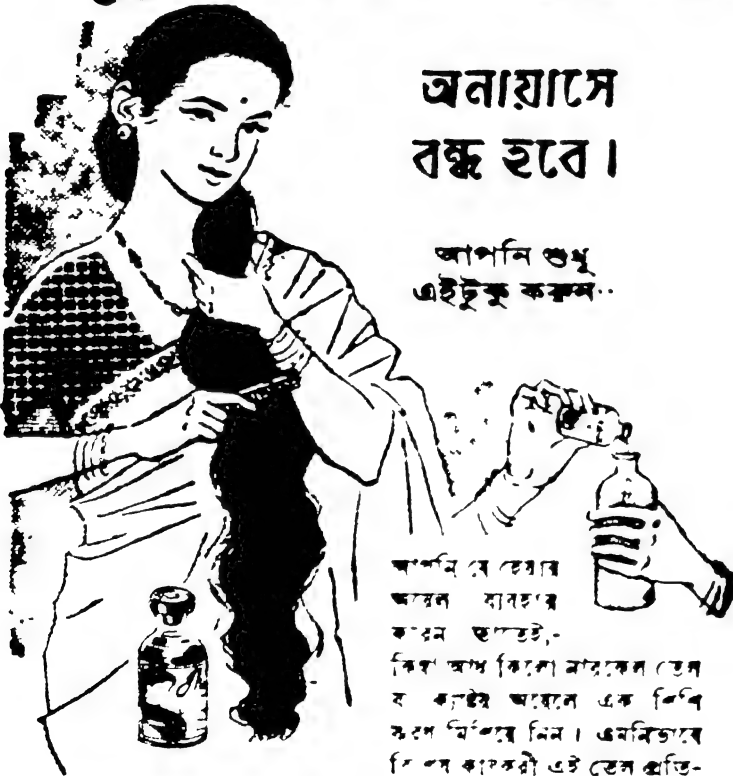 অনায়াসে
বন্ধ হবে।
আপনি শুধু
এইটুকু করুন..
আপনি যে হেয়ার
অয়েল ব্যবহার
করেন তাতেই,-
কিম্বা আধ কিলো নারকেল তেল
ব ক্যাষ্টর অয়েলে এক শিশি
মিশিয়ে নিন। এমনিভাবে
এই তেল প্রতি-